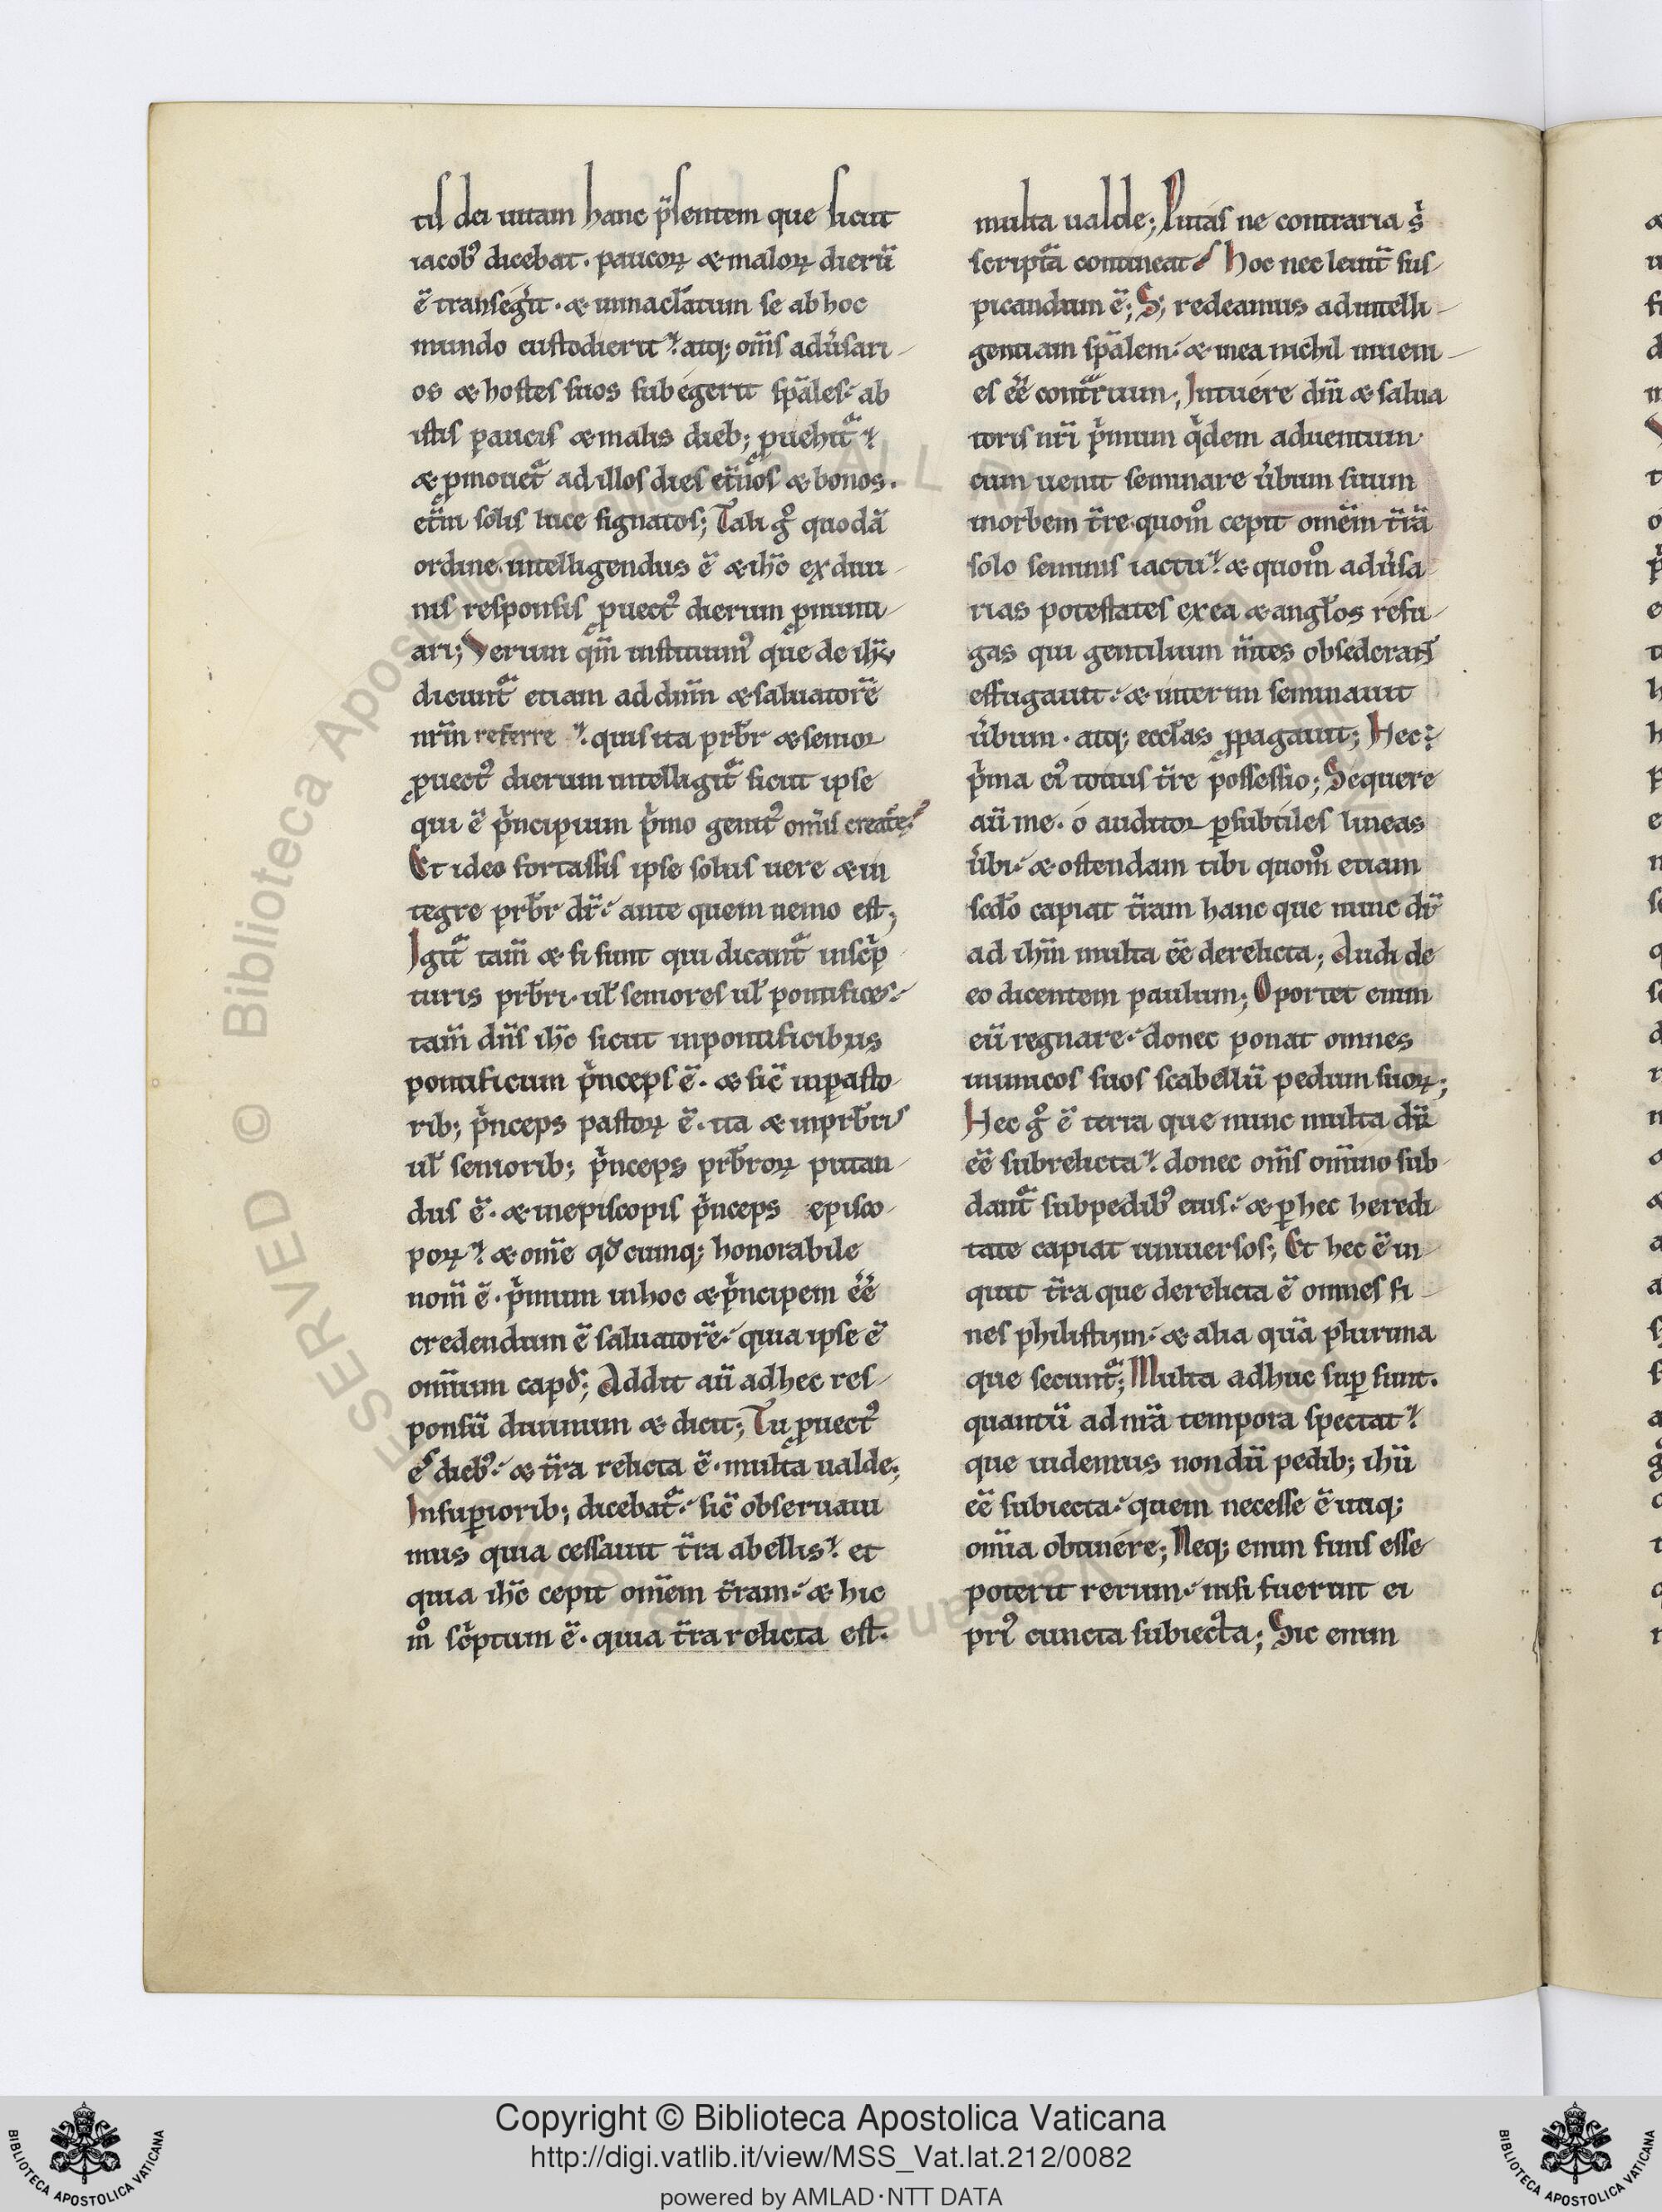 tıſ dei uitam hanc p̄ſentem que ſicut
iacobꝰ dicebat. paucoꝝ & maloꝝ dierū
ē tranſegit. & inmaculatum ſe ab hoc
mundo cuſtodierit. atq; om̄ſ adu̓ſari
os & hoſteſ ſuos ſubegerit ſp̄aleſ. ab
iſtiſ pauciſ & malis dieb; ꝓuehit᷑
& ꝓmouet᷑ ad illoſ dieſ et̄noſ & bonos.
et̄ni soliſ luce ſignatoſ; Tali gͦ quodā
ordine intelligendus ē & ih̄c ex diui
niſ reſponſiſ ꝓuectꝰ dierum ꝓnunti
ari; Verum qm̄ inſtituimꝰ que de ih̄u
dicunt᷑ etiam ad dn̄m & ſaluatorē
nr̄m referre. quiſ ita prb̄r & ſenior
ꝓuectꝰ dierum intelligit᷑ ſicut ipſe
qui ē p̓ncipium p̓mo genitꝰ om̄iſ creat᷑e.
Et ideo fortaſſiſ ipſe ſoluſ uere & in
tegre prb̄r dr̄. ante quem nemo eſt;
Igit᷑ tam̄ & ſi ſunt qui dicant᷑ inſcp̓
turis prb̄ri. ul̄ ſenioreſ ul̄ pontificeſ.
tam̄ dn̄ſ ih̄c ſicut inpontificibus
pontificum p̓ncepſ ē. & ſic̄ inpaſto
rib; p̓nceps paſtoꝝ ē. ita & inprb̄riſ
ul̄ ſeniorib; p̓nceps prb̄roꝝ putan
duſ ē. & inepiſcopiſ p̓nceps epiſco
poꝝ. & om̄e qd̄ cumq; honorabile
nom̄ ē. p̓mum inhoc & p̓ncipem ēē
credendum ē ſaluatorē. quia ipſe ē
om̄ium capd̄; Addit aū adhec reſ
ponſū diuinum & dicit; Tu ꝓuectꝰ
eſ diebꝰ. & t̄ra relicta ē. multa ualde;
Inſuꝑiorib; dicebat᷑. ſic̄ obſeruaui
mus quia ceſſauit t̄ra abelliſ. et
quia ih̄c cepit om̄em t̄ram. & hic
m̊ ſcp̓tum ē. quia t̄ra relicta eſt.
multa ualde; Putaſ ne contraria s̓
ſcript᷑a contineat. Hoc nec leuit̄ ſuſ
picandum ē; S; redeamus adintelli
gentiam ſp̄alem. & inea nichil inueni
eſ ēē contrarium; Intuere dn̄i & ſalua
toriſ nr̄i p̓mum q̓dem aduentum
cum uenit ſeminare u̓bum ſuum
inorbem t̄re. quom̊ cepit om̄em t̄rā
ſolo ſeminiſ iactu. & quom̊ adu̓ſa
rias poteſtateſ ex ea & angl̄os refu
gas qui gentilium m̄tes obſederant
effugauit. & interim ſeminauit
u̓bum. atq; eccl̄as ꝓpagauit; Hec
p̓ma eiꝰ totiuſ t̄re poſſeſſio; Sequere
aū me. o auditor ꝑſubtileſ lineas
u̓bi. & oſtendam tibi quom̊ etiam
ſcd̄o capiat t̄ram hanc que nunc dr̄
ad ih̄m multa ēē derelicta; Audi de
eo dicentem paulum; Oportet enim
eū regnare. donec ponat omnes
inimicoſ ſuoſ ſcabellū pedum ſuoꝝ;
Hec gͦ ē terra que nunc multa dr̄
ēē ſubrelicta. donec om̄ſ om̄ino ſub
dant᷑ ſubpedibꝰ eiuſ. & ꝑhec heredi
tate capiat uniuerſoſ; Et hec ē in
quit t̄ra que derelicta ē omneſ fi
nes philiſtijm. & alia qua plurima
que ſecunt᷑; Multa adhuc ſuꝑſunt.
quantū ad nr̄a tempora ſpectat
que uidemus nondū pedib; ih̄u
ēē ſubiecta. quem neceſſe ē utiq;
om̄ia obtinere; Neq; enim finiſ eſſe
poterit rerum. niſi fuerint ei
priꝰ cuncta ſubiecta; Sic enim
© Biblioteca Apostolica Vaticana ALL RIGHTS RESERVED
Copyright © Biblioteca Apostolica Vaticana
http://digi.vatlib.it/view/MSS_Vat.lat.212/0082
powered by AMLAD·NTT DATA
BIBLIOTECA APOSTOLICA VATICANA
BIBLIOTECA APOSTOLICA VATICANA